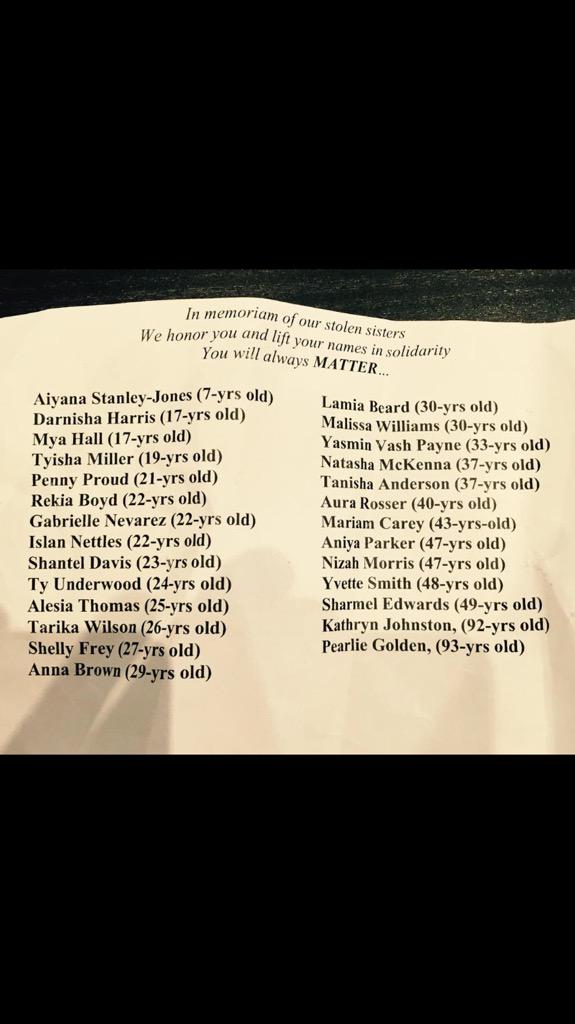 In memoriam of our stolen sisters
We honor you and lift your names in solidarity
You will always MATTER...
Aiyana Stanley-Jones (7-yrs old)
Darnisha Harris (17-yrs old)
Mya Hall (17-yrs old)
Tyisha Miller (19-yrs old)
Penny Proud (21-yrs old)
Rekia Boyd (22-yrs old)
Gabrielle Nevarez (22-yrs old)
Islan Nettles (22-yrs old)
Shantel Davis (23-yrs old)
Ty Underwood (24-yrs old)
Alesia Thomas (25-yrs old)
Tarika Wilson (26-yrs old)
Shelly Frey (27-yrs old)
Anna Brown (29-yrs old)
Lamia Beard (30-yrs old)
Malissa Williams (30-yrs old)
Yasmin Vash Payne (33-yrs old)
Natasha McKenna (37-yrs old)
Tanisha Anderson (37-yrs old)
Aura Rosser (40-yrs old)
Mariam Carey (43-yrs-old)
Aniya Parker (47-yrs old)
Nizah Morris (47-yrs old)
Yvette Smith (48-yrs old)
Sharmel Edwards (49-yrs old)
Kathryn Johnston, (92-yrs old)
Pearlie Golden, (93-yrs old)